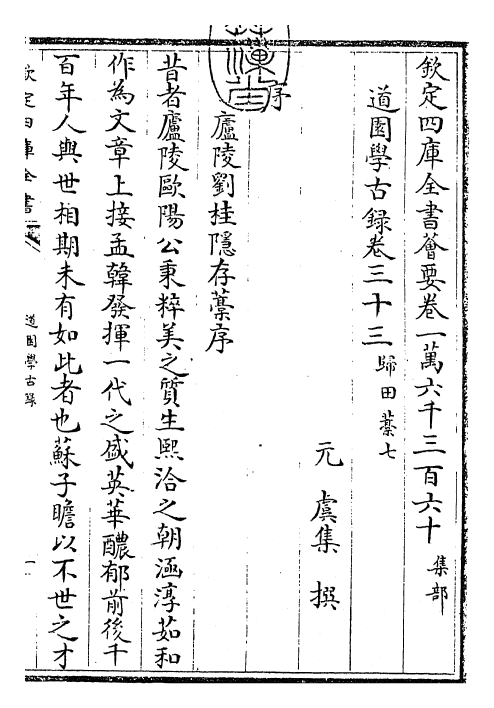 欽定四庫全書薈要卷一萬六千三百六十 集部
道園學古録卷三十三 歸田藁七
元 虞集 撰
序
廬陵劉桂隱存藁序
昔者廬陵歐陽公秉粹美之質生熙洽之朝涵淳茹和
作為文章上接孟韓發揮一代之盛英華醲郁前後千
百年人與世相期未有如此者也蘇子瞻以不世之才
欽定四庫全書
道園學古録
一